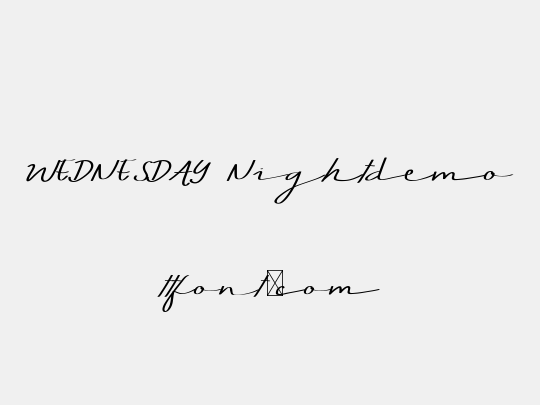 WEDNESDAY Nightdemo
ttfont.com